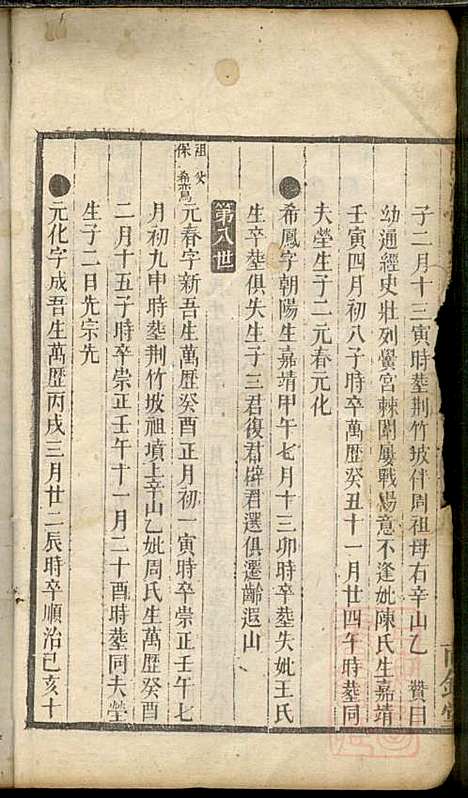 子二月十三寅時葬荆竹坡伴周祖母右辛山乙　贊曰
幼通經史壯列黌宮棘闈屢戰場意不逢妣陳氏生嘉靖
壬寅四月初八子時卒萬歷癸丑十一月廿四午時葬同
夫塋生子二元春元化
希鳳字朝陽生嘉靖甲午七月十三卯時卒葬失妣王氏
生卒葬俱失生子三君復君辟君選俱遷齡遐山
第八世
祖父希鸞保
元春字新吾生萬歷癸酉正月初一寅時卒崇正壬午七
月初九申時葬荆竹坡祖墳上辛山乙妣周氏生萬歷癸酉
二月十五子時卒崇正壬午十一月二十酉時葬同夫塋
生子二日先宗先
元化字成吾生萬歷丙戌三月廿二辰時卒順治己亥十